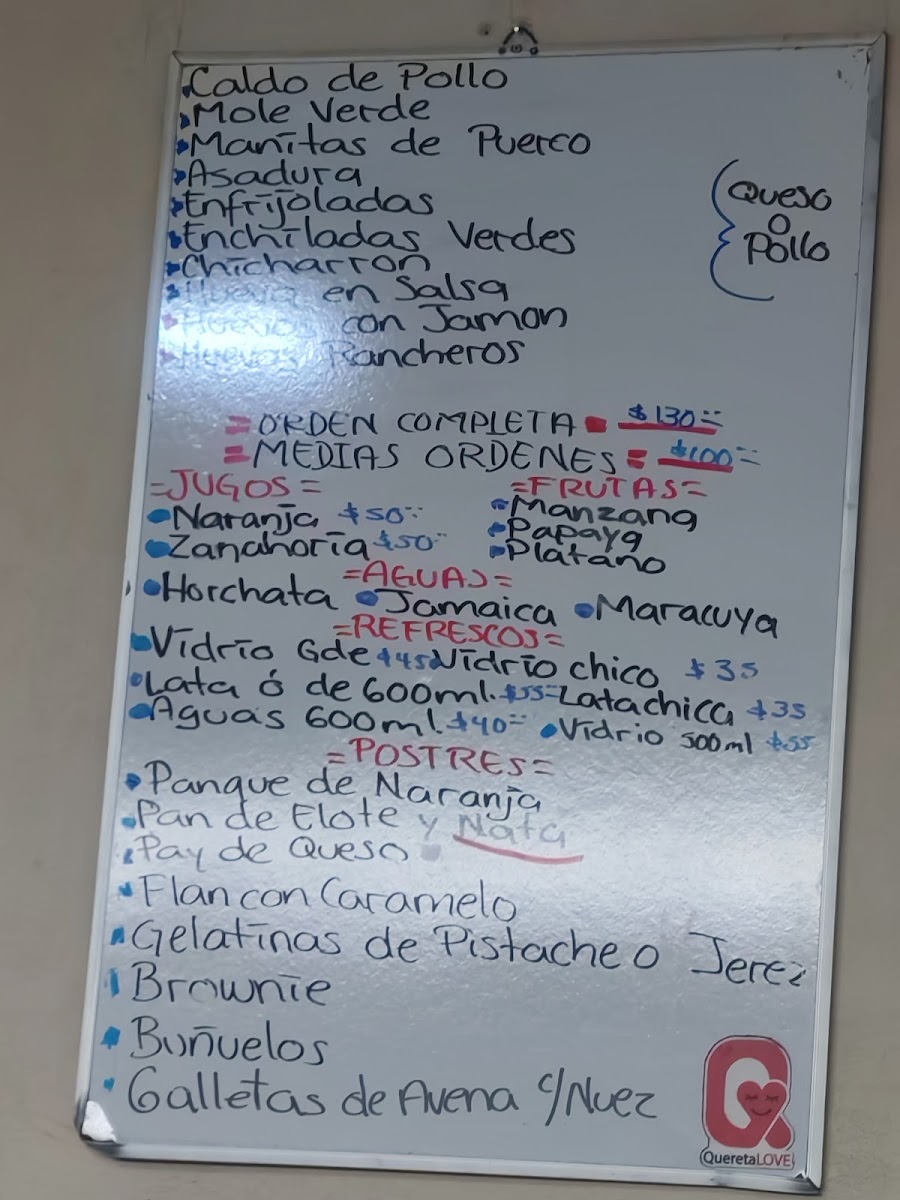 Caldo de Pollo
Mole Verde
Manitas de Puerco
Asadura
Enfrijoladas
Enchiladas Verdes
Queso
o
Pollo
Chicharron
en Salsa
con Jamon
Huevos Rancheros
= ORDEN COMPLETA = $130=
= MEDIAS ORDENES = $100=
=JUGOS=
Naranja $50=
Zanahoria $50=
=FRUTAS=
Manzana
Papaya
Platano
=AGUAS=
Horchata Jamaica Maracuya
=REFRESCOS=
Vidrio Gde $45 Vidrio chico $35
Lata ó de 600ml. $55= Lata chica $35
Aguas 600ml. $40= Vidrio 500ml $55
=POSTRES=
Panque de Naranja
Pan de Elote y Nata
Pay de Queso
Flan con Caramelo
Gelatinas de Pistache o Jerez
Brownie
Buñuelos
Galletas de Avena c/Nuez
QueretaLOVE